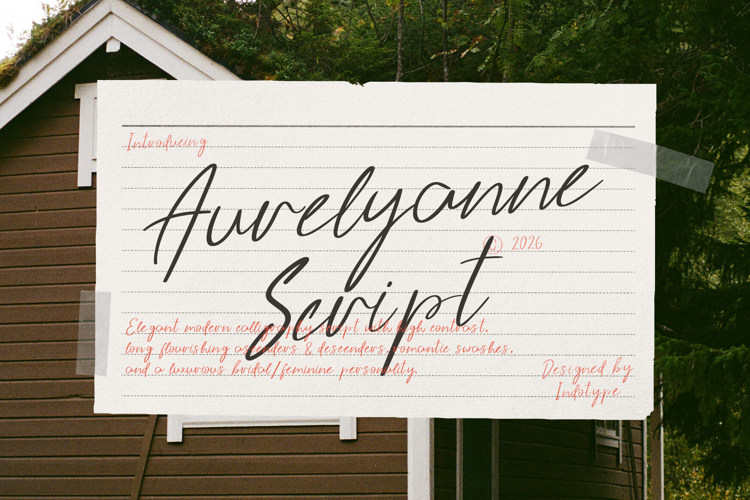 Introducing
Aurelyanne
© 2026
Script
Elegant modern calligraphy script with high contrast,
long flourishing ascenders & descenders, romantic swashes,
and a luxurious bridal/feminine personality.
Designed by
Indotype